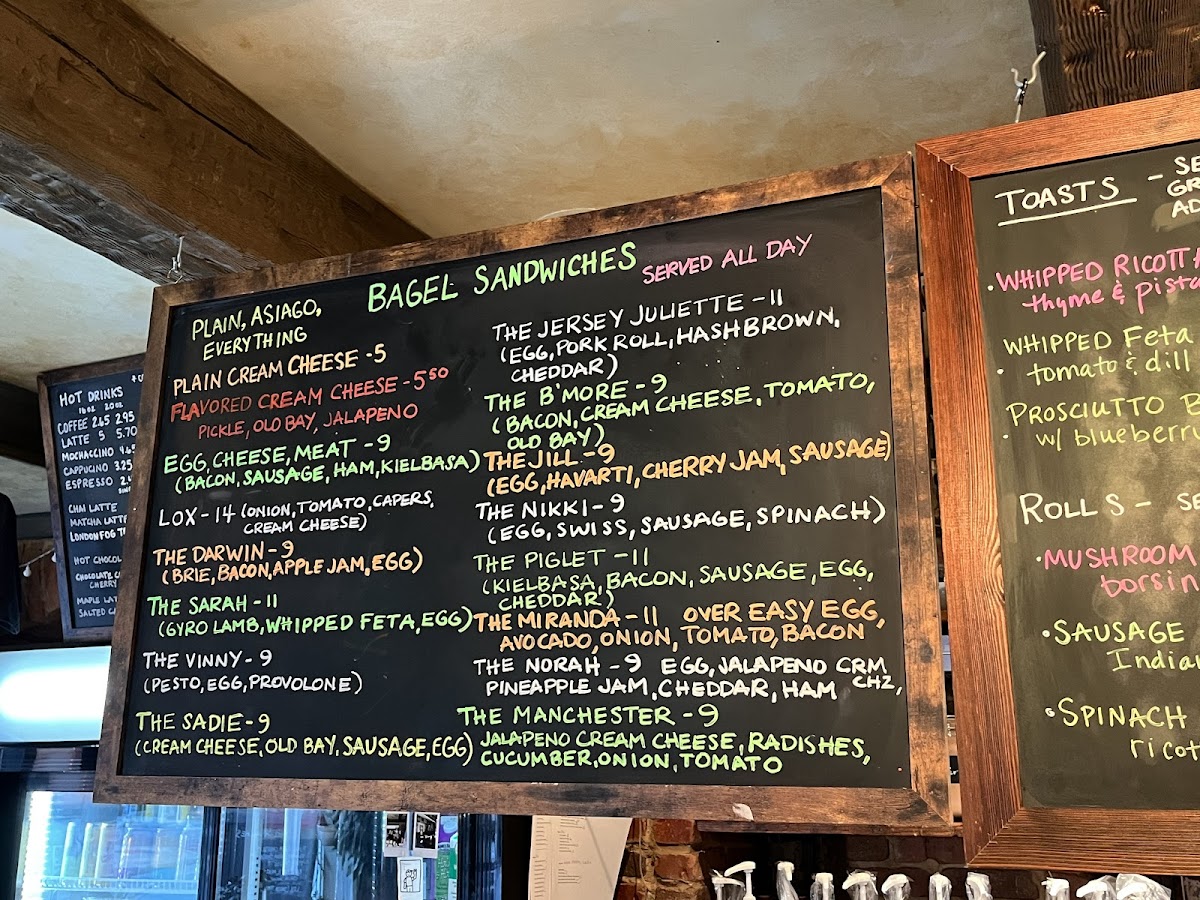 HOT DRINKS
16oz 20oz
COFFEE 2.65 2.95
LATTE 5 5.70
MOCHACCINO 4.65
CAPPUCINO 3.25
ESPRESSO
CHAI LATTE
MATCHA LATTE
LONDON FOG
HOT CHOCOL
CHOCOLATE
CHERRY
MAPLE LAT
SALTED
BAGEL SANDWICHES SERVED ALL DAY
PLAIN, ASIAGO,
EVERYTHING
PLAIN CREAM CHEESE - 5
FLAVORED CREAM CHEESE - 5 50
PICKLE, OLD BAY, JALAPENO
EGG, CHEESE, MEAT - 9
(BACON, SAUSAGE, HAM, KIELBASA)
LOX - 14 (ONION, TOMATO, CAPERS,
CREAM CHEESE)
THE DARWIN - 9
(BRIE, BACON, APPLE JAM, EGG)
THE SARAH - 11
(GYRO LAMB, WHIPPED FETA, EGG)
THE VINNY - 9
(PESTO, EGG, PROVOLONE)
THE SADIE - 9
(CREAM CHEESE, OLD BAY, SAUSAGE, EGG)
THE JERSEY JULIETTE - 11
(EGG, PORK ROLL, HASHBROWN,
CHEDDAR)
THE B'MORE - 9
(BACON, CREAM CHEESE, TOMATO,
OLD BAY)
THE JILL - 9
(EGG, HAVARTI, CHERRY JAM, SAUSAGE)
THE NIKKI - 9
(EGG, SWISS, SAUSAGE, SPINACH)
THE PIGLET - 11
(KIELBASA, BACON, SAUSAGE, EGG,
CHEDDAR)
THE MIRANDA - 11 OVER EASY EGG,
AVOCADO, ONION, TOMATO, BACON
THE NORAH - 9 EGG, JALAPENO CRM CHZ,
PINEAPPLE JAM, CHEDDAR, HAM
THE MANCHESTER - 9
JALAPENO CREAM CHEESE, RADISHES,
CUCUMBER, ONION, TOMATO
TOASTS - SE
GR
AD
· WHIPPED RICOTTA
thyme & pista
· WHIPPED Feta
tomato & dill
· PROSCIUTTO B
w/ blueberry
ROLLS - SE
· MUSHROOM
borsin
· SAUSAGE
Indian
· SPINACH
ricot